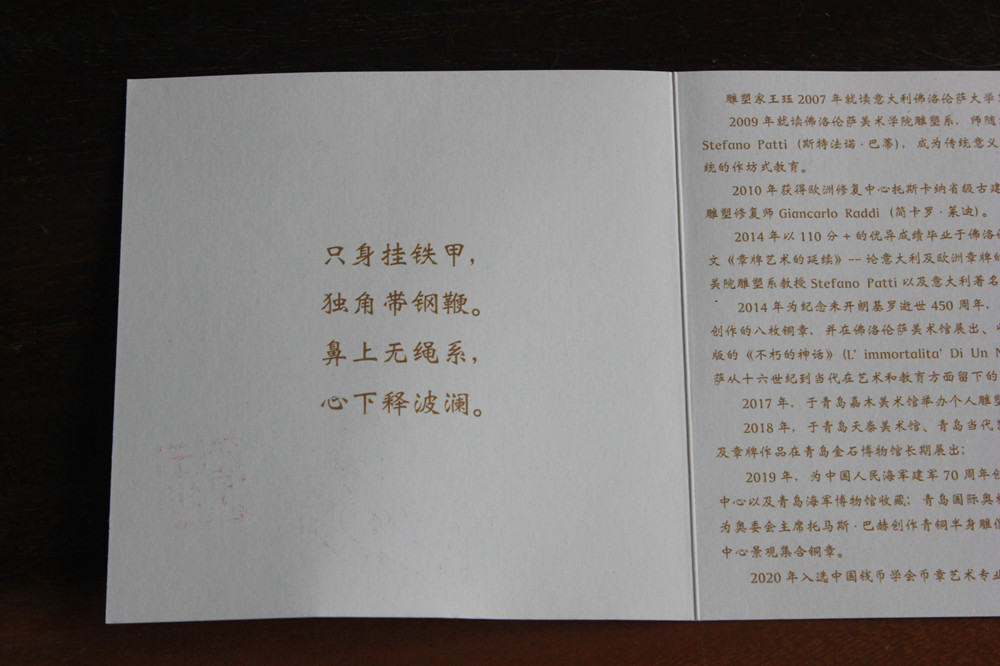 只身挂铁甲，
独角带钢鞭。
鼻上无绳系，
心下释波澜。
雕塑家王珏2007年就读意大利佛洛伦萨大学
2009年就读佛洛伦萨美术学院雕塑系，师随
Stefano Patti（斯特法诺·巴蒂），成为传统意义
统的作坊式教育。
2010年获得欧洲修复中心托斯卡纳省级古建
雕塑修复师Giancarlo Raddi（简卡罗·莱迪）。
2014年以110分+的优异成绩毕业于佛洛
文《章牌艺术的延续》--论意大利及欧洲章牌的
美院雕塑系教授Stefano Patti以及意大利著名
2014年为纪念米开朗基罗逝世450周年，
创作的八枚铜章，并在佛洛伦萨美术馆展出、
版的《不朽的神话》(L' immortalita' Di Un
萨从十六世纪到当代在艺术和教育方面留下的
2017年，于青岛嘉木美术馆举办个人雕塑
2018年，于青岛天泰美术馆、青岛当代
及章牌作品在青岛金石博物馆长期展出；
2019年，为中国人民海军建军70周年创
中心以及青岛海军博物馆收藏；青岛国际奥
为奥委会主席托马斯·巴赫创作青铜半身雕像
中心景观集合铜章。
2020年入选中国钱币学会币章艺术专业